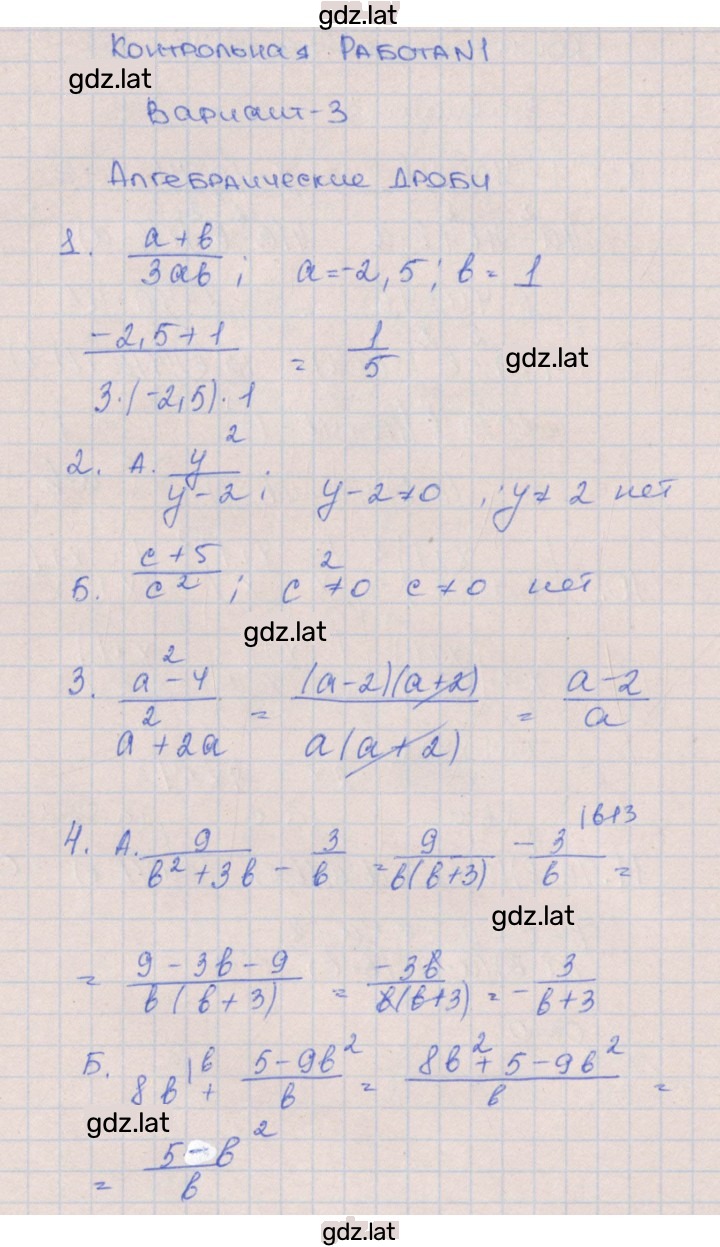 gdz.lat
Контрольная РАБОТА N1
gdz.lat
Вариант-3
Алгебраические дроби
1. (a+b)/(3ab); a=-2,5; b=1
(-2,5+1)/(3·(-2,5)·1) = 1/5
gdz.lat
2. А. y²/(y-2); y-2≠0, y≠2 нет
Б. (c+5)/c²; c²≠0 c≠0 нет
gdz.lat
3. (a²-4)/(a²+2a) = ((a-2)(a+2))/(a(a+2)) = (a-2)/a
4. А. 9/(b²+3b) - 3/b = 9/(b(b+3)) - 3/b |b+3 =
gdz.lat
= (9-3b-9)/(b(b+3)) = (-3b)/(b(b+3)) = -3/(b+3)
Б. 8b |b + (5-9b²)/b = (8b²+5-9b²)/b =
gdz.lat
= (5-b²)/b
gdz.lat